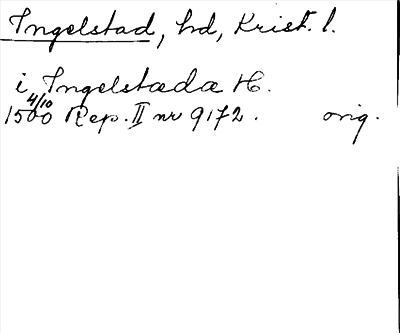 Ingelstad, hd, Krist. l.
i Ingelstæda H.
1500 4/10 Rep. II nr 9172. orig.